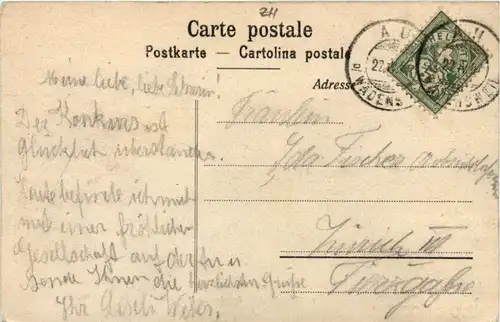 ZH
Carte postale
Postkarte — Cartolina postale
Adresse
AU
22.
WÄDENS
Meine liebe, liebe Lehrerin!
Der Konkurs ist
Glücklich überstanden.
Heute befinde ich mich
mit einer fröhlichen
Gesellschaft auf der
Sende Ihnen die herzlichsten Grüsse
Ihre
Fräulein
Ida Fischer
Zürich III